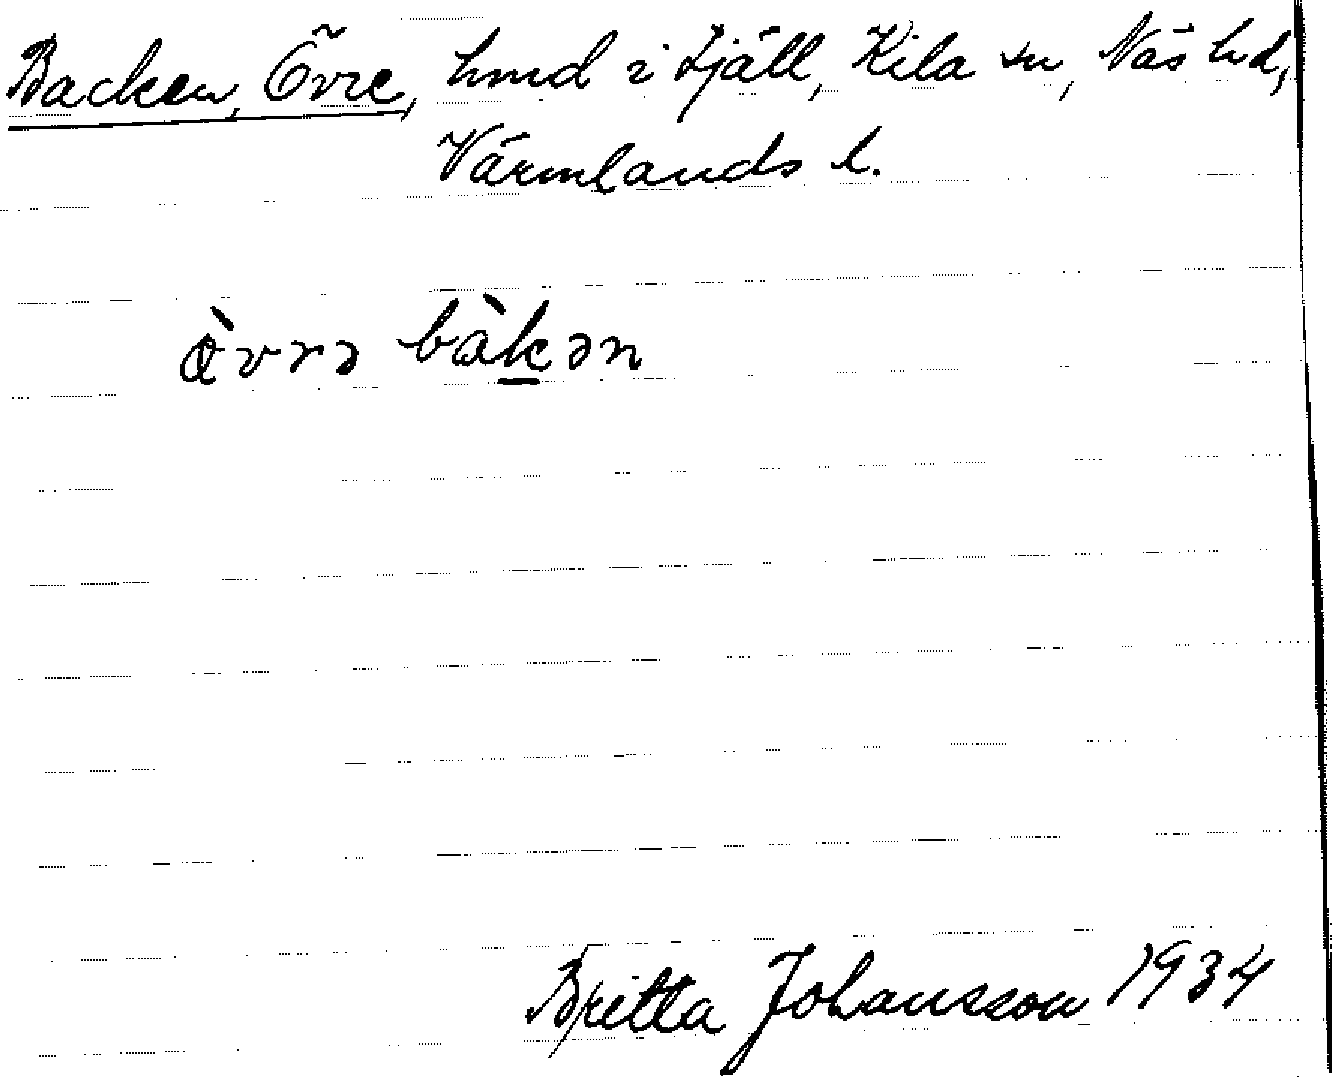 Backen, Övre, hmd i Fjäll, Kila sn, Näs hd,
Värmlands l.
òvrə bàkən
Britta Johansson 1934